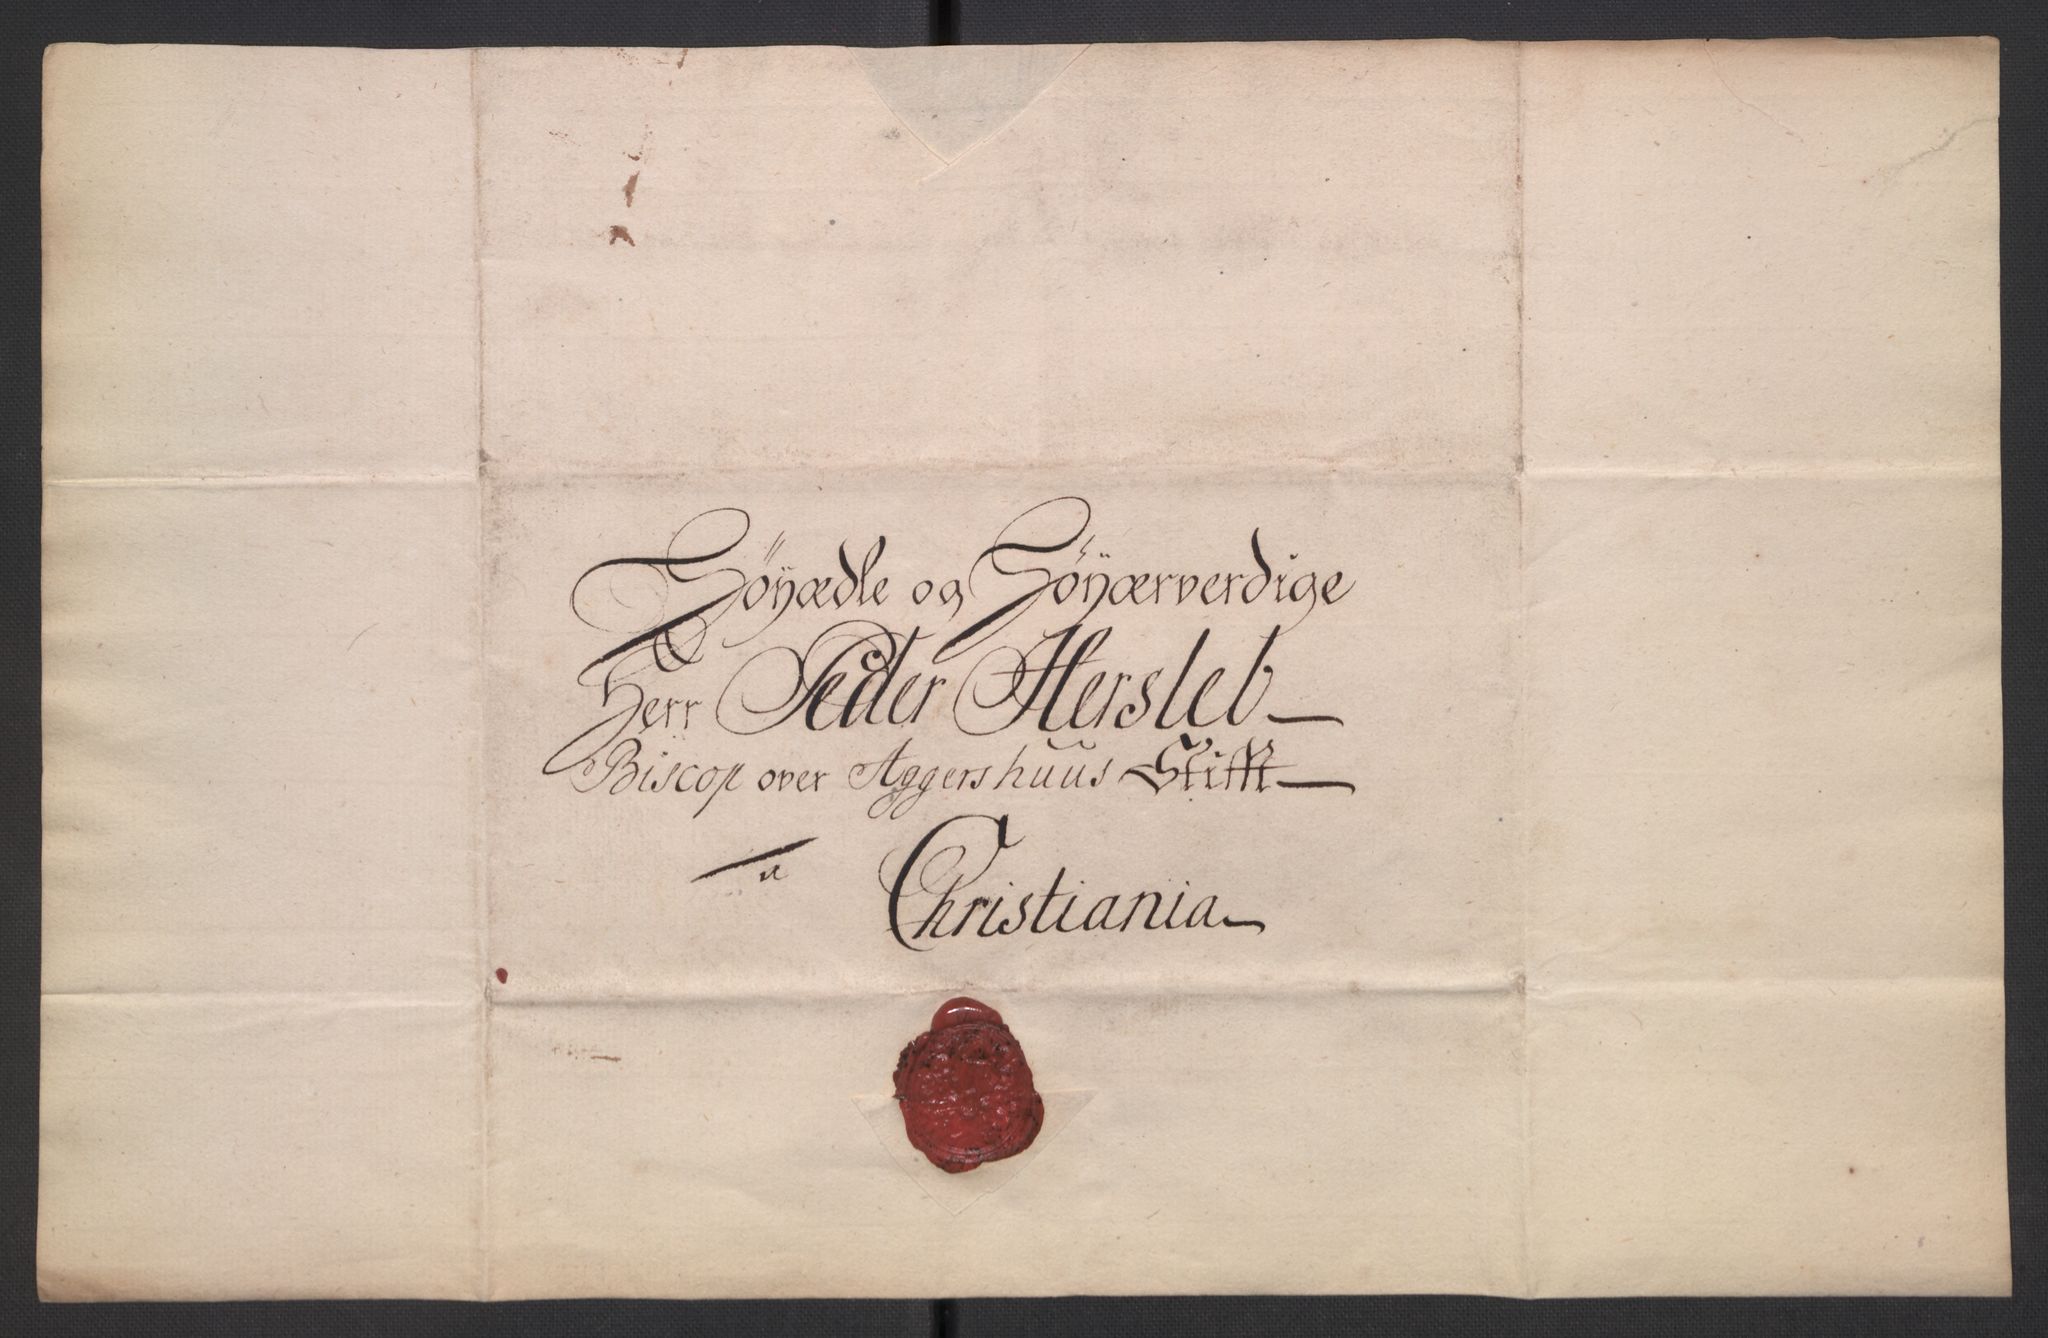 Höÿædle og Höÿærverdige
Herr Peder Hersleb
Biscop over Aggershuus Stifft
a
Christiania